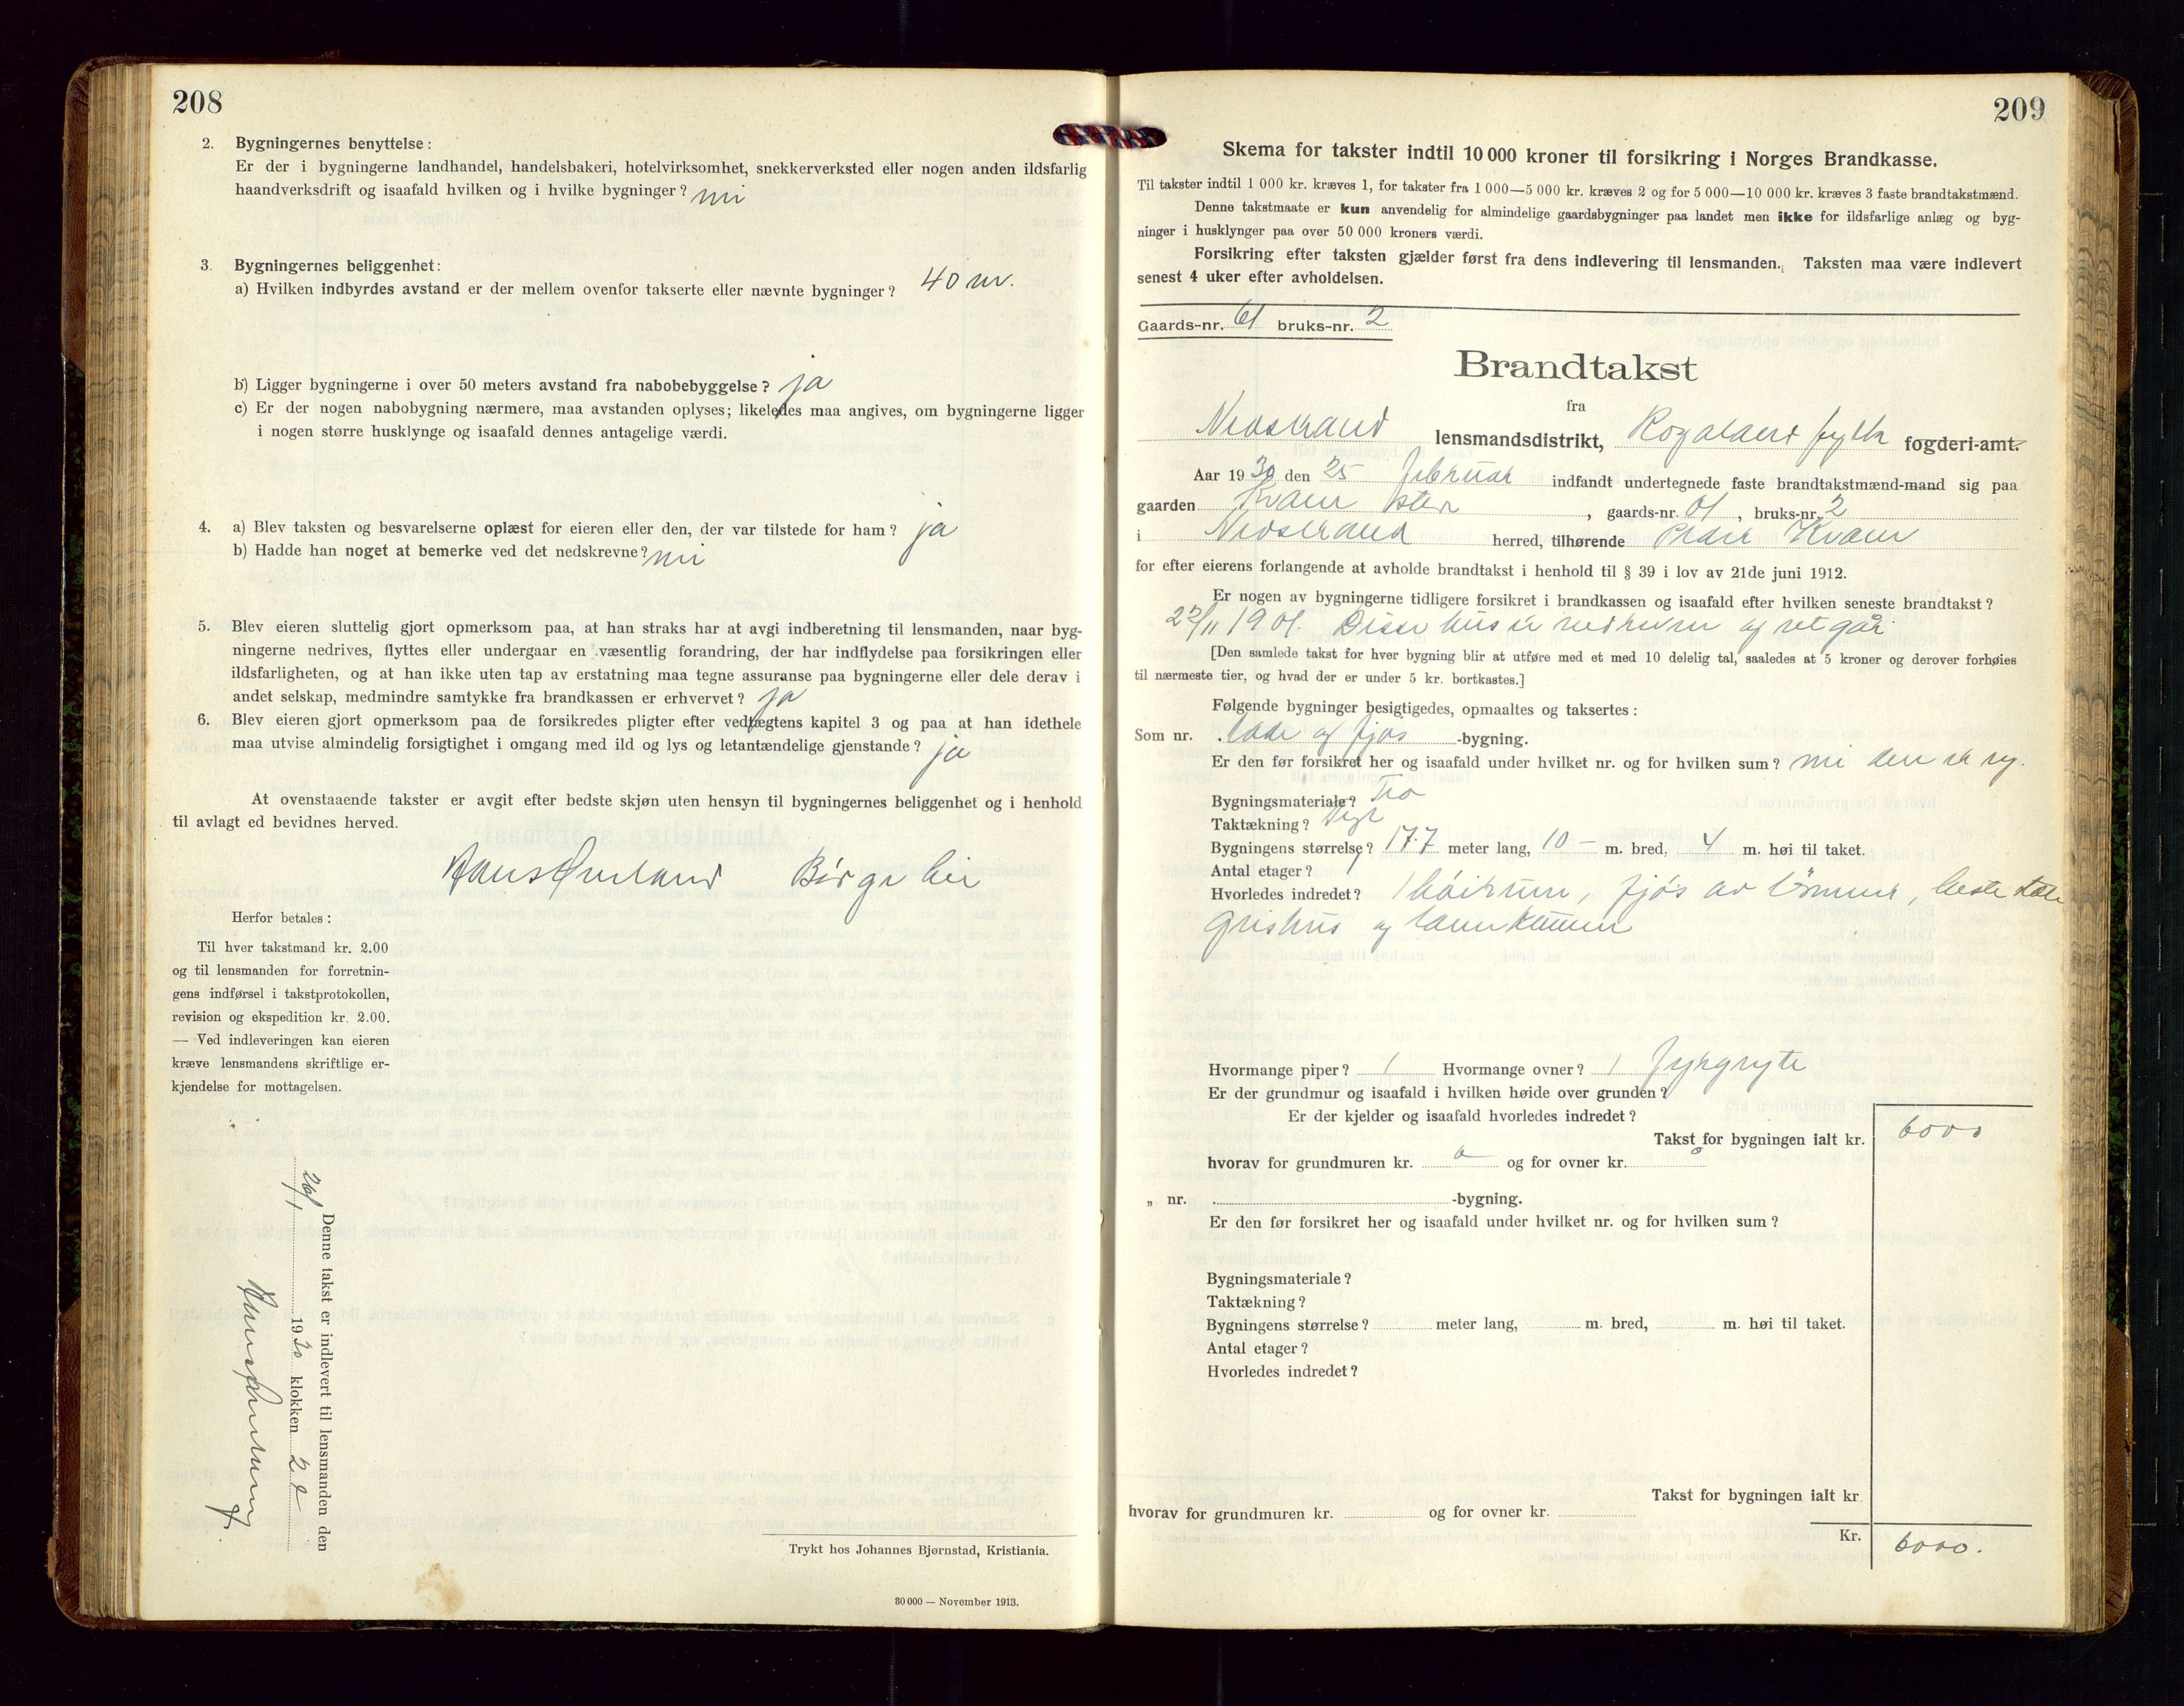 208
2. Bygningernes benyttelse:
Er der i bygningerne landhandel, handelsbakeri, hotelvirksomhet, snekkerverksted eller nogen anden ildsfarlig
haandverksdrift og isaafald hvilken og i hvilke bygninger? nei
3. Bygningernes beliggenhet:
a) Hvilken indbyrdes avstand er der mellem ovenfor takserte eller nævnte bygninger? 40 m.
b) Ligger bygningerne i over 50 meters avstand fra nabobebyggelse? ja
c) Er der nogen nabobygning nærmere, maa avstanden oplyses; likeledes maa angives, om bygningerne ligger
i nogen større husklynge og isaafald dennes antagelige værdi.
4. a) Blev taksten og besvarelserne oplæst for eieren eller den, der var tilstede for ham? ja
b) Hadde han noget at bemerke ved det nedskrevne? nei
5. Blev eieren sluttelig gjort opmerksom paa, at han straks har at avgi indberetning til lensmanden, naar byg-
ningerne nedrives, flyttes eller undergaar en væsentlig forandring, der har indflydelse paa forsikringen eller
ildsfarligheten, og at han ikke uten tap av erstatning maa tegne assuranse paa bygningerne eller dele derav i
andet selskap, medmindre samtykke fra brandkassen er erhvervet? ja
6. Blev eieren gjort opmerksom paa de forsikredes pligter efter vedtægtens kapitel 3 og paa at han idethele
maa utvise almindelig forsigtighet i omgang med ild og lys og letantændelige gjenstande? ja
At ovenstaaende takster er avgit efter bedste skjøn uten hensyn til bygningernes beliggenhet og i henhold
til avlagt ed bevidnes herved.
Hans Børge Lie
Herfor betales:
Til hver takstmand kr. 2.00
og til lensmanden for forretnin-
gens indførsel i takstprotokollen,
revision og ekspedition kr. 2.00.
— Ved indleveringen kan eieren
kræve lensmandens skriftlige er-
kjendelse for mottagelsen.
Denne takst er indlevert til lensmanden den
1930 klokken 2
Trykt hos Johannes Bjørnstad, Kristiania.
30 000 — November 1913.
209
Skema for takster indtil 10 000 kroner til forsikring i Norges Brandkasse.
Til takster indtil 1 000 kr. kræves 1, for takster fra 1 000—5 000 kr. kræves 2 og for 5 000—10 000 kr. kræves 3 faste brandtakstmænd.
Denne takstmaate er kun anvendelig for almindelige gaardsbygninger paa landet men ikke for ildsfarlige anlæg og byg-
ninger i husklynger paa over 50 000 kroners værdi.
Forsikring efter taksten gjælder først fra dens indlevering til lensmanden. Taksten maa være indlevert
senest 4 uker efter avholdelsen.
Gaards-nr. 61 bruks-nr. 2
Brandtakst
fra
Nedstrand lensmandsdistrikt, Rogaland fylke fogderi-amt.
Aar 1930 den 25 februar indfandt undertegnede faste brandtakstmænd-mand sig paa
gaarden Kvam , gaards-nr. 61, bruks-nr. 2
i Nedstrand herred, tilhørende Peder Kvam
for efter eierens forlangende at avholde brandtakst i henhold til § 39 i lov av 21de juni 1912.
Er nogen av bygningerne tidligere forsikret i brandkassen og isaafald efter hvilken seneste brandtakst?
22/11 1901. Disse hus er nedrevne og utgår
[Den samlede takst for hver bygning blir at utføre med et med 10 delelig tal, saaledes at 5 kroner og derover forhøies
til nærmeste tier, og hvad der er under 5 kr. bortkastes.]
Følgende bygninger besigtigedes, opmaaltes og taksertes:
Som nr. lade og fjøs -bygning.
Er den før forsikret her og isaafald under hvilket nr. og for hvilken sum? nei den er ny.
Bygningsmateriale? Tre
Taktækning? Tegl
Bygningens størrelse? 17.7 meter lang, 10 — m. bred, 4 m. høi til taket.
Antal etager? 1
Hvorledes indredet? 1 høirum, fjøs av tömmer, hestestal
grishus og
Hvormange piper? 1 Hvormange ovner? 1 fyrgryte
Er der grundmur og isaafald i hvilken høide over grunden?
Er der kjelder og isaafald hvorledes indredet?
Takst for bygningen ialt kr. 6000
hvorav for grundmuren kr. 0 og for ovner kr. 0
„ nr. -bygning.
Er den før forsikret her og isaafald under hvilket nr. og for hvilken sum?
Bygningsmateriale?
Taktækning?
Bygningens størrelse? meter lang, m. bred, m. høi til taket.
Antal etager?
Hvorledes indredet?
Takst for bygningen ialt kr
hvorav for grundmuren kr. og for ovner kr.
Kr. 6000.